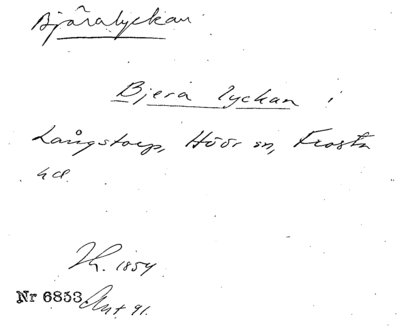 Bjäralyckan
Bjera lyckan i
Långstorp, Höör sn, Frosta
hd
Th. 1854
Nr 6853. Ant 91.